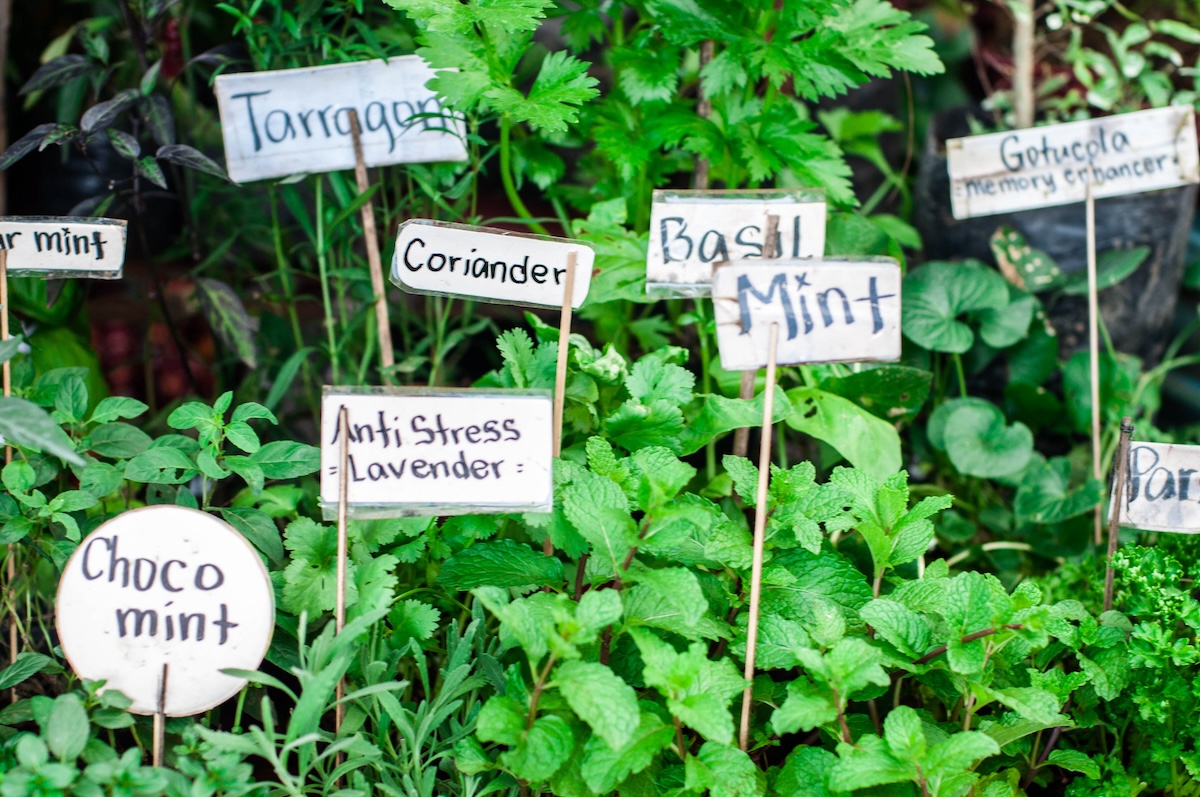 Tarragon
Gotucola
=memory enhancer=
Basil
mint
Coriander
Mint
Anti Stress
=Lavender=
Choco
mint